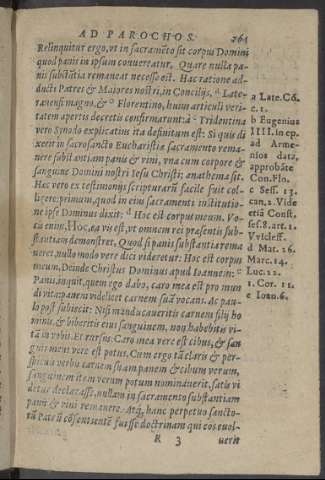 AD PAROCHOS. 261
Relinquitur ergo, vt in sacramẽto sit corpus Domini
quod panis in ipsum conuertatur. Quare nulla pa-
nis substãtia remaneat necesse est. Hac ratione ad-
ducti Patres & Maiores nostri, in Concilijs, a Late-
ranensi magno, & b Florentino, huius articuli veri-
tatem apertis decretis confirmarunt: à c Tridentina
vero Synodo explicatius ita definitum est: Si quis di
xerit in sacrosãcto Eucharistiæ sacramento rema-
nere substantiam panis & vini, vna cum corpore &
sanguine Domini nostri Iesu Christi: anathema sit.
Hæc vero ex testimonijs scripturarũ facile fuit col-
ligere: primum, quod in eius sacramenti institutio-
ne ipse Dominus dixit: d Hoc est corpus meum. Vo-
cis enim, Hoc, ea vis est, vt omnem rei præsentis sub-
stantiam demonstret. Quod si panis substantia rema
neret, nullo modo vere dici videretur: Hoc est corpus
meum. Deinde Christus Dominus apud Ioannem: e
Panis, inquit, quem ego dabo, caro mea est pro mun
di vita: panem videlicet carnem suã vocans. Ac pau-
lo post subiecit: Nisi manducaueritis carnem filij ho
minis, & biberitis eius sanguinem, non habebitis vi-
tã in vobis. Et rursus: Caro mea vere est cibus, & san
guis meus vere est potus. Cum ergo tã claris & per-
spicuis verbis carnem suam panem & cibum verum,
sanguinem item verum potum nominauerit, satis vi
detur declarasse, nullam in sacramento substantiam
panis & vini remanere. Atq́, hanc perpetuo sancto-
rũ Patrũ cõsentientẽ fuisse doctrinam qui euol-
R 3 uerit
a Late. Cõ.
c. 1.
b Eugenius
IIII. in ep.
ad Arme-
nios data,
approbãte
Con. Flo.
c Sess. 13.
can. 2. Vide
etiã Const.
ses. 8. art. 1.
Vvicleff.
d Mat. 26.
Marc. 14.
Luc. 22.
1. Cor. 11.
e Ioan. 6.